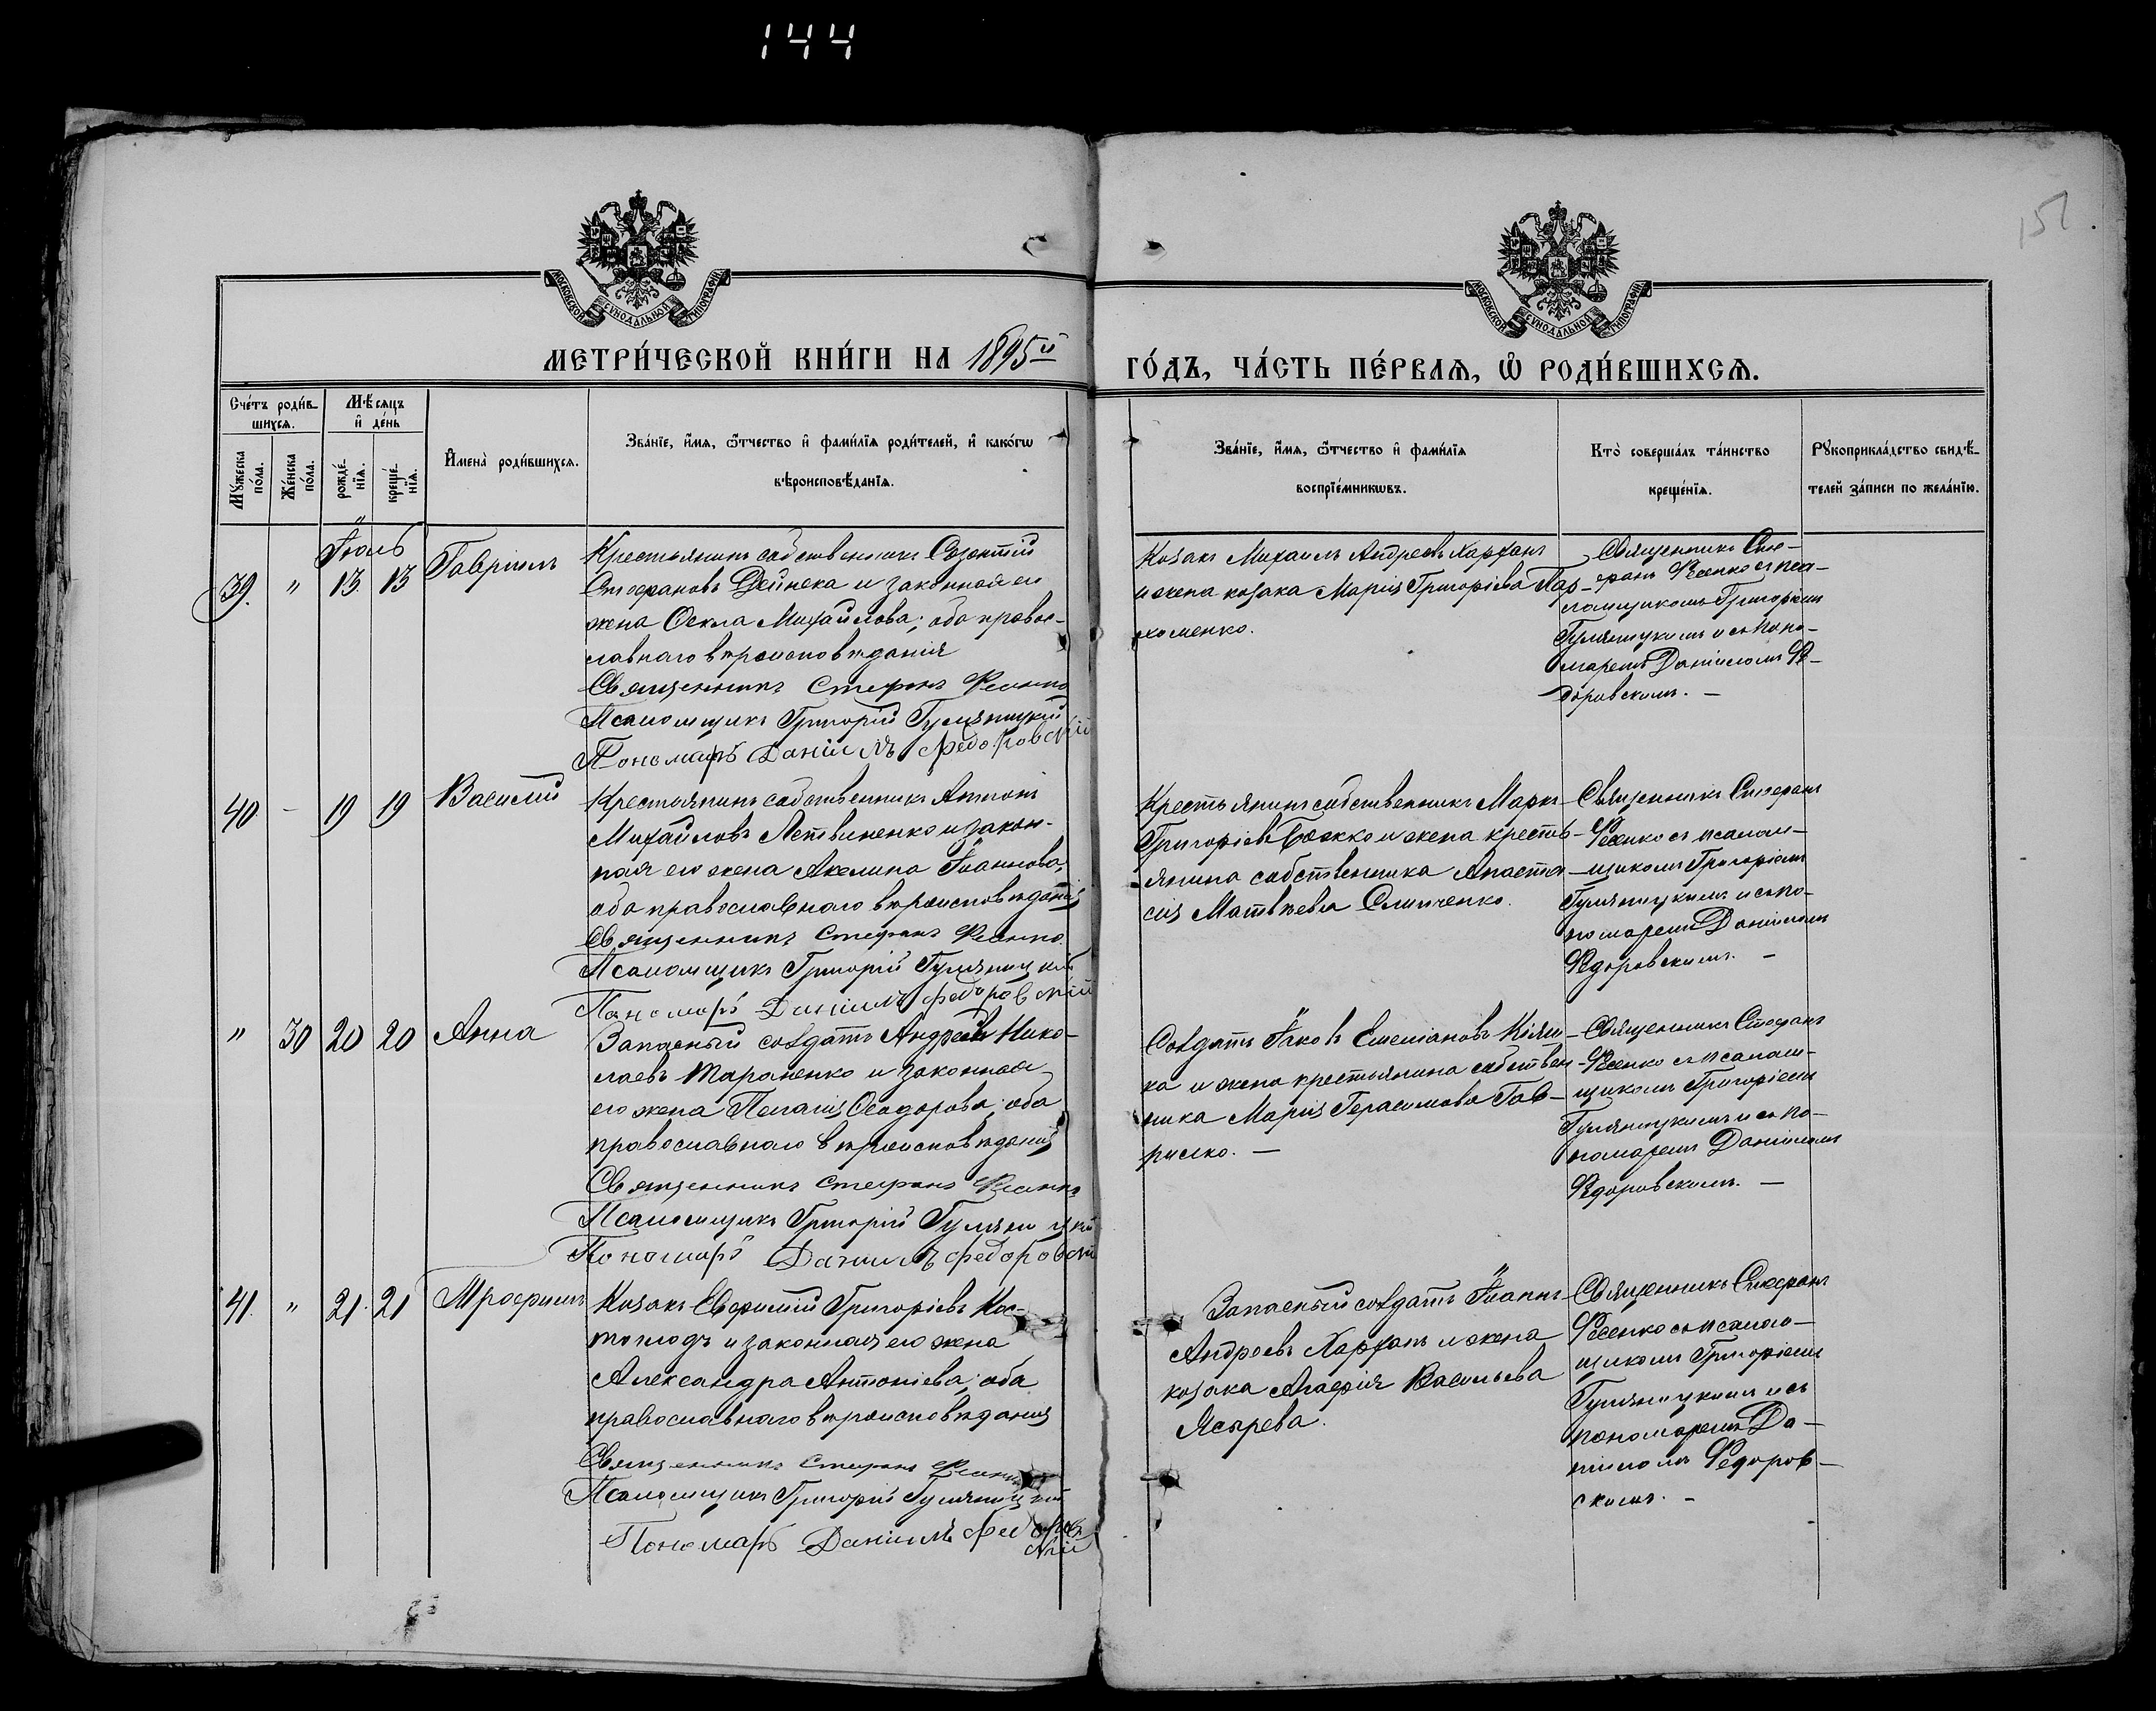 144
151
МОСКОВСКОЙ СУНОДАЛЬНОЙ ТИПОГРАФІИ
МОСКОВСКОЙ СУНОДАЛЬНОЙ ТИПОГРАФІИ
МЕТРИ́ЧЕСКОЙ КНИ́ГИ НА 1895й
ГО́ДЪ, ЧА́СТЬ ПЕ́РВАѦ, Ѡ҆ РОДИ́ВШИХСѦ.
Сче́тъ роди́в-
шихсѧ.
Мѣ́сѧцъ
и҆ де́нь
Мꙋ́жеска по́ла.
Же́нска по́ла.
рожде́-
нїѧ.
креще́-
нїѧ.
И҆мена̀ роди́вшихсѧ.
Зва́нїе, и҆́мѧ, ѻ҆́тчество и҆ фами́лїѧ роди́телей, и҆ како́гѡ
вѣроисповѣ́данїѧ.
Зва́нїе, и҆́мѧ, ѻ҆́тчество и҆ фами́лїѧ
воспрїе́мникѡвъ.
Кто̀ соверша́лъ та́инство
креще́нїѧ.
Рꙋкоприкла́дство свидѣ́-
телей за́писи по жела́нїю.
Іюль
39. " 13. 13 Гавріилъ
Крестьянинъ собственникъ Леонтій
Стефановъ Дейнека и законная его
жена Ѳекла Михайлова; оба право-
славнаго вѣроисповѣданія
Священникъ Стефанъ Фесенко
Псаломщикъ Григорій Гуляницкій
Пономарь Даніилъ Федоровскій
Козакъ Михаилъ Андреевъ Харханъ
и жена козака Марія Григоріева Пар-
хоменко.
Священникъ Сте-
фанъ Фесенко съ пса-
ломщикомъ Григоріемъ
Гуляницкимъ и съ поно-
маремъ Даніиломъ Фе-
доровскимъ. —
40. - 19 19 Василій
Крестьянинъ собственникъ Антонъ
Михайловъ Литвиненко и закон-
ная его жена Акелина Іоаннова;
оба православнаго вѣроисповѣданія
Священникъ Стефанъ Фесенко
Псаломщикъ Григорій Гуляницкій
Пономарь Даніилъ Федоровскій
Крестьянинъ собственникъ Маркъ
Григоріевъ Божко и жена кресть-
янина собственника Анаста-
сія Матвѣева Слипченко.
Священникъ Стефанъ
Фесенко съ псалом-
щикомъ Григоріемъ
Гуляницкимъ и съ по-
номаремъ Даніиломъ
Федоровскимъ. —
" 30 20 20 Анна
Запасный солдатъ Андрей Нико-
лаевъ Тараненко и законная
его жена Пелагія Ѳеодорова; оба
православнаго вѣроисповѣданія
Священникъ Стефанъ Фесенко
Псаломщикъ Григорій Гуляницкій
Пономарь Даніилъ Федоровскій
Солдатъ Іаковъ Емеліановъ Кіяш-
ка и жена крестьянина собствен-
ника Марія Герасимова Гав-
рилко. —
Священникъ Стефанъ
Фесенко съ псалом-
щикомъ Григоріемъ
Гуляницкимъ и съ по-
номаремъ Даніиломъ
Федоровскимъ. —
41. " 21. 21 Трофимъ
Козакъ Евфимій Григоріевъ Кос-
тоглодъ и законная его жена
Александра Антоніева; оба
православнаго вѣроисповѣданія
Священникъ Стефанъ Фесенко
Псаломщикъ Григорій Гуляницкій
Пономарь Даніилъ Федоров
скій
Запасный солдатъ Іоаннъ
Андреевъ Харханъ и жена
козака Агафія Васильева
Ясырева.
Священникъ Стефанъ
Фесенко съ псалом-
щикомъ Григоріемъ
Гуляницкимъ и съ
пономаремъ Да-
ніиломъ Федоров-
скимъ. -